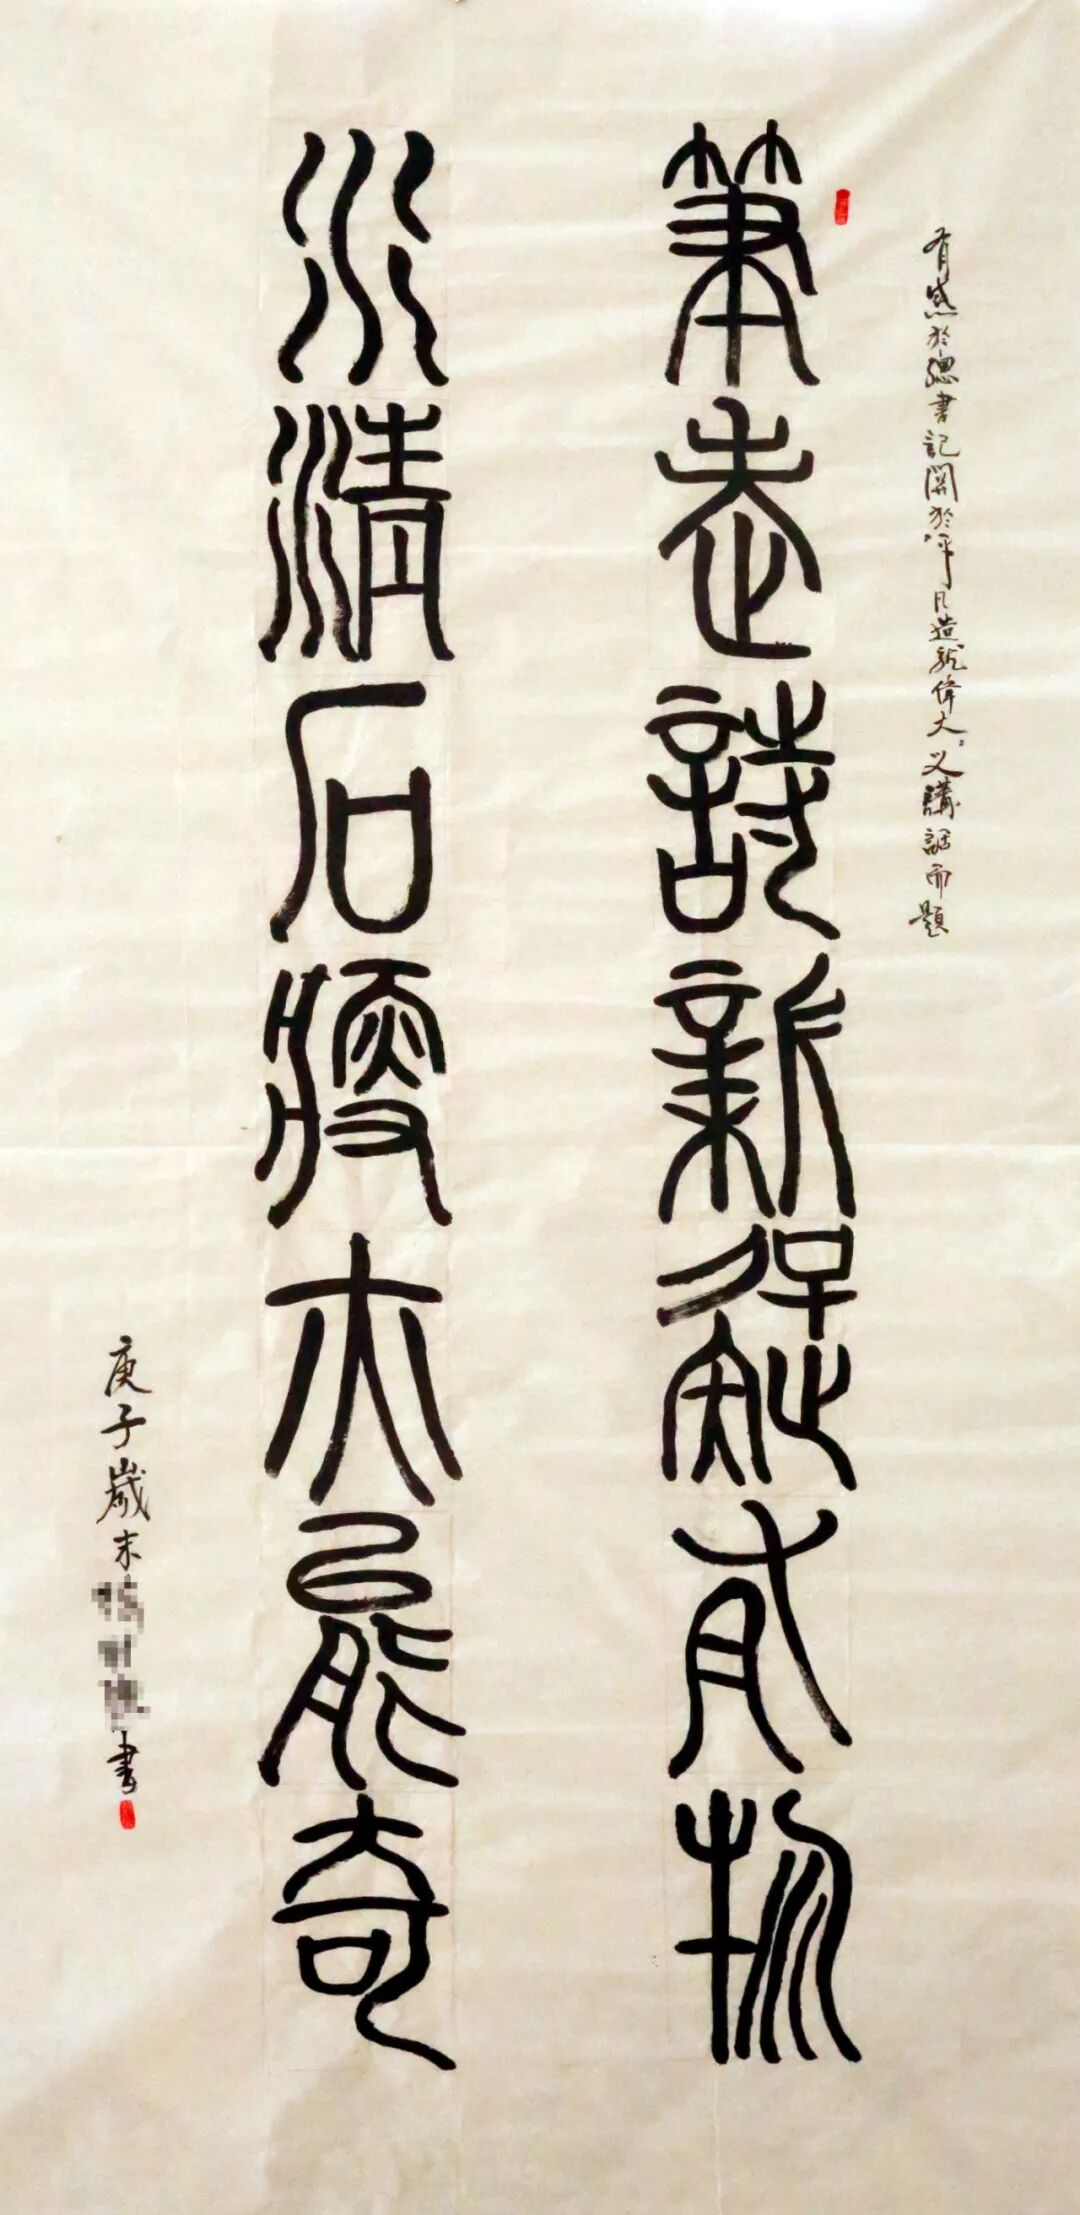 有感於總書記關於“平凡造就偉大”之講話而題
筆走詩新疑有物
水清石瘦亦能奇
庚子歲末 書